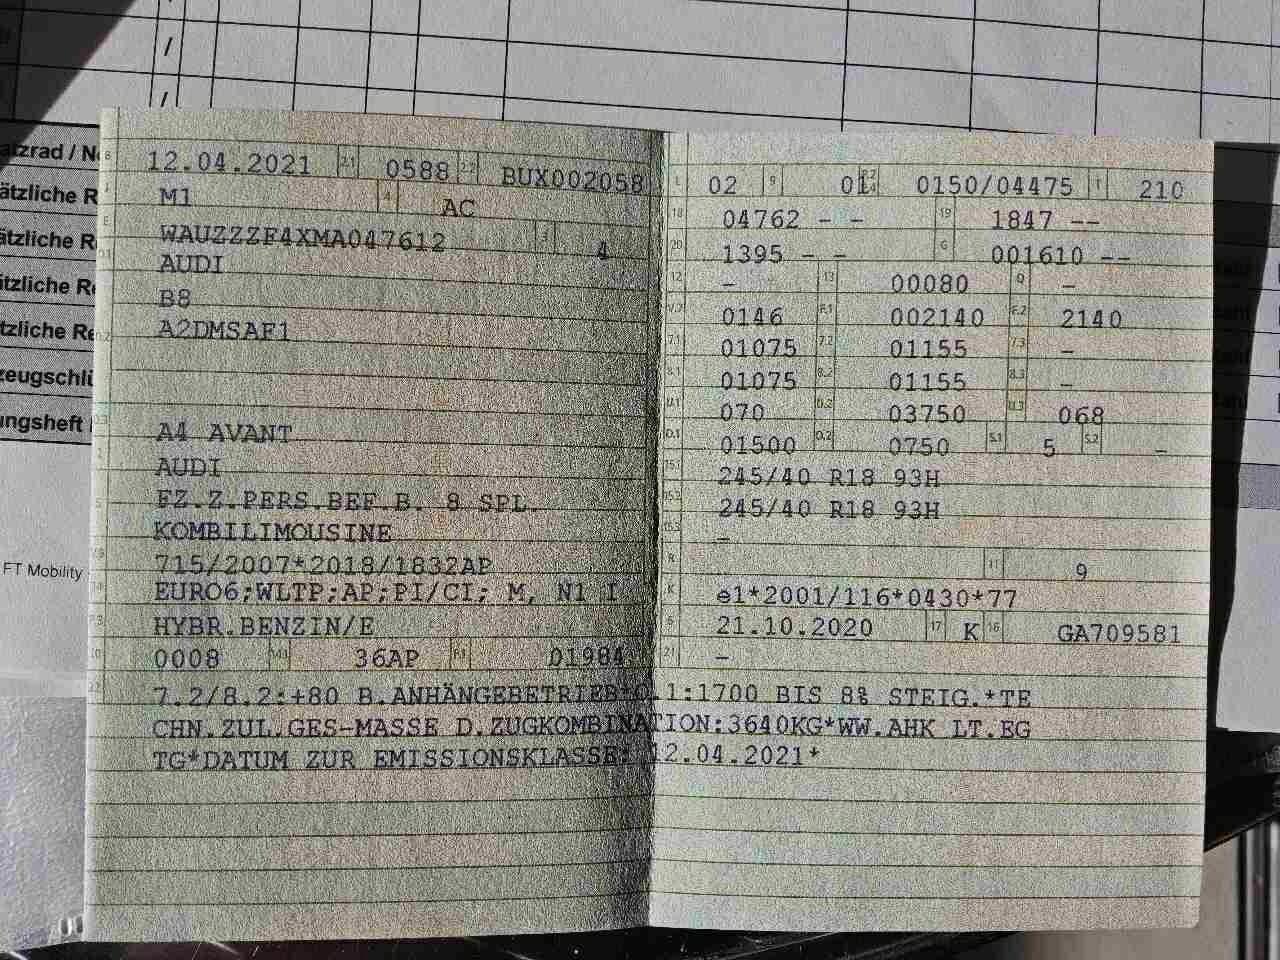 /
/
atzrad / N
ätzliche R
ätzliche R
ätzliche Re
tzliche Re
zeugschlü
ungsheft
FT Mobility
B 12.04.2021 2.1 0588 2.2 BUX002058
J M1 4 AC
E WAUZZZF4XMA047612 3 4
D.1 AUDI
B8
D.2 A2DMSAF1
D.3 A4 AVANT
2 AUDI
5 FZ.Z.PERS.BEF.B. 8 SPL.
KOMBILIMOUSINE
V.9 715/2007*2018/1832AP
14 EURO6;WLTP;AP;PI/CI; M, N1 I
P.3 HYBR.BENZIN/E
10 0008 14.1 36AP P.1 01984
22 7.2/8.2:+80 B.ANHÄNGEBETRIEB*O.1:1700 BIS 8% STEIG.*TE
CHN.ZUL.GES-MASSE D.ZUGKOMBINATION:3640KG*WW.AHK LT.EG
TG*DATUM ZUR EMISSIONSKLASSE: 12.04.2021*
L 02 9 01 P.2 P.4 0150/04475 T 210
18 04762 - - 19 1847 --
20 1395 - - G 001610 --
12 - 13 00080 Q -
V.7 0146 F.1 002140 F.2 2140
7.1 01075 7.2 01155 7.3 -
8.1 01075 8.2 01155 8.3 -
U.1 070 U.2 03750 U.3 068
O.1 01500 O.2 0750 S.1 5 S.2 -
15.1 245/40 R18 93H
15.2 245/40 R18 93H
15.3 -
R 11 9
K e1*2001/116*0430*77
6 21.10.2020 17 K 16 GA709581
21 -